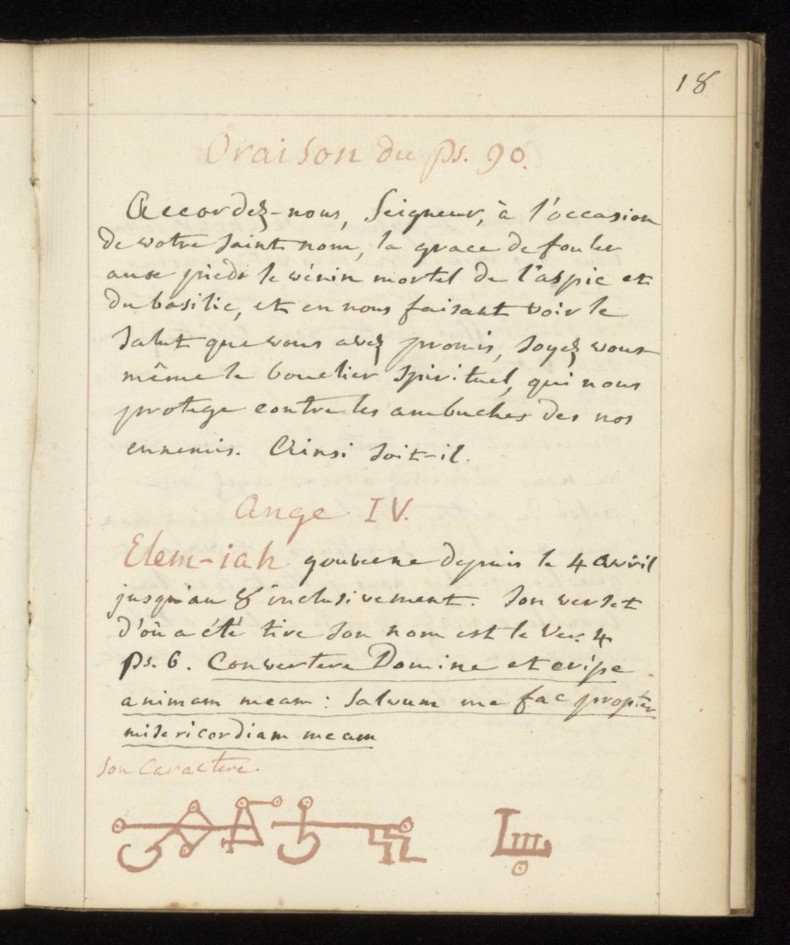 18
Oraison du ps. 90.
Accordez-nous, Seigneur, à l'occasion
de votre saint nom, la grace de fouler
aux pieds le vénin mortel de l'aspic et
du basilic, et en nous faisant voir le
salut que vous avez promis, soyez vous
même le bouclier spirituel, qui nous
protege contre les ambuches des nos
ennemis. Ainsi soit-il.
Ange IV.
Elem-iah gouverne depuis le 4 avril
jusqu'au 8 inclusivement. Son verset
d'où a été tire son nom est le Ver. 4
ps. 6. Convertere Domine et eripe
animam meam : salvum me fac propter
misericordiam meam
son Caractere.